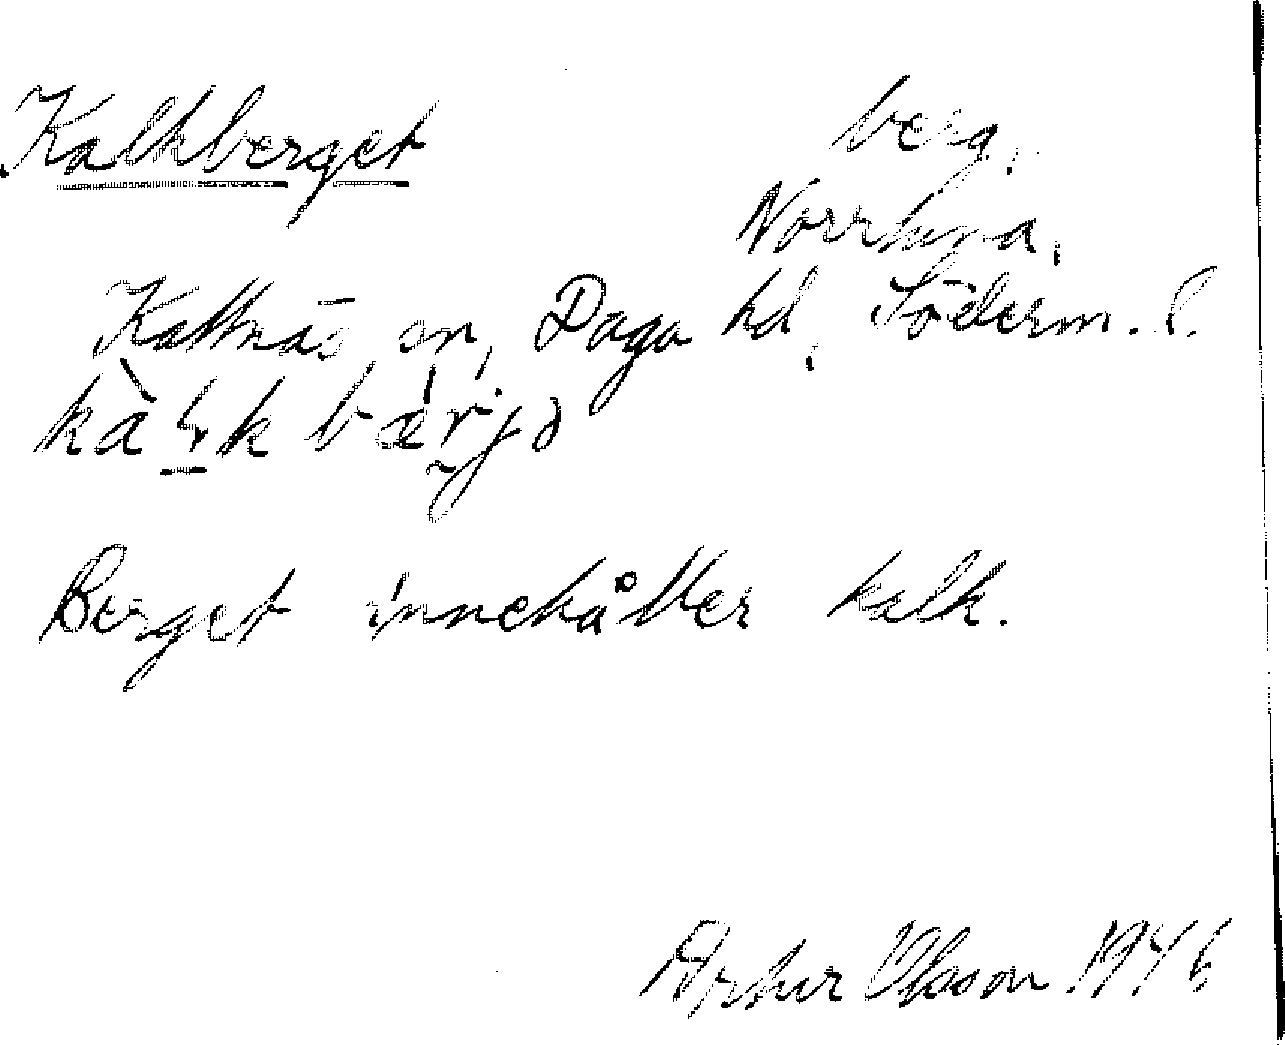 Kalkberget
berg,
Norrtuna,
Kattnäs sn, Daga hd, Söderm. l.
Berget innehåller kalk.
Artur Olsson 1946